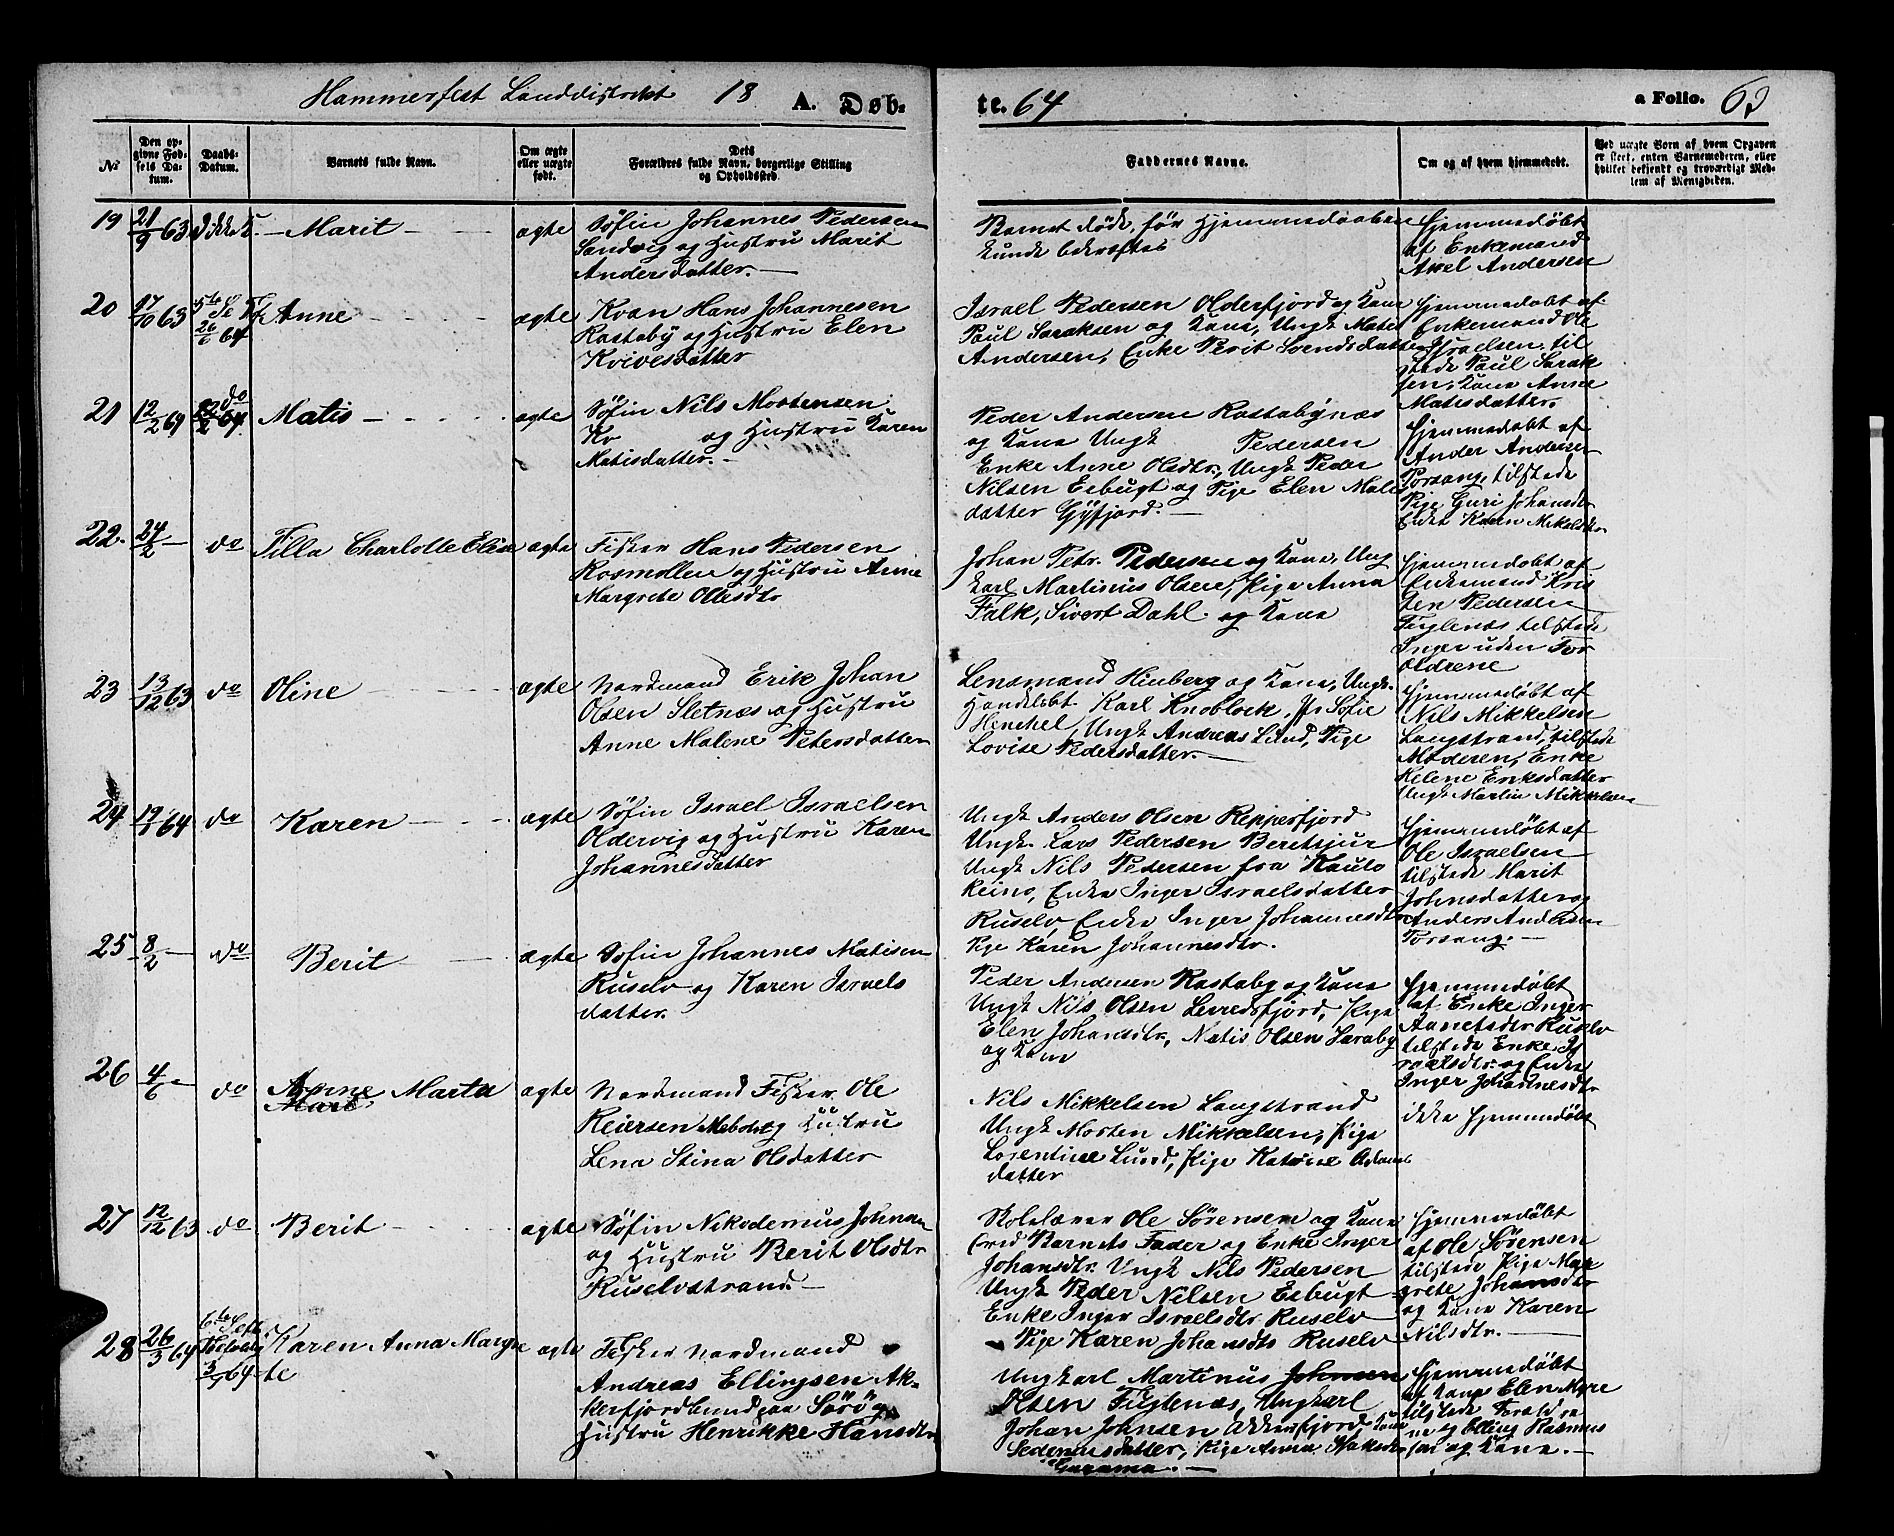 Hammerfest Landdistrikt 18 A. Døb-
te. 64 a Folio. 62
No
Den op-
givne Fød-
sels Da-
tum.
Daabs-
Datum.
Barnets fulde Navn.
Om ægte
eller uægte
født.
Dets
Forældres fulde Navn, borgerlige Stilling
og Opholdssted.
Faddernes Navne.
Om og af hvem hjemmedøbt.
Ved uægte Børn af hvem Opgaven
er skeet, enten Barnemoderen, eller
hvilket bekjendt og troværdigt Med-
lem af Menigheden.
19 21/9 63 Marit ægte
Søfin Johannes Pedersen
Sandvig og Hustru Marit
Andersdatter.
Barnet døde, før Hjemmedaaben
kunde bekræftes
Hjemmedøbt
af Enkemand
Axel Andersen
20 17/10 63 26/6 64 Anne ægte
Kvæn Hans Johannesen
Kastaby og Hustru Elen
Kvivesdatter
Israel Pedersen Olderfjord og Kone
Paul Saraksen og Kone, Ungk Matis
Andersen, Enke Berit Svendsdatter
Hjemmedøbt af
Enkemand Ole
Israelsen, til
stede Paul Sarak
sen, Kone Anne
Matisdatter.
21 12/2 64 do Matis ægte
Søfin Nils Mortensen
Kv og Hustru Karen
Matisdatter.
Peder Andersen Kastabynæs
og Kone Ungk Pedersen
Enke Anne Olsdtr, Ungk Peder
Nilsen Eebugt og Pige Elen Matis
datter Gyfjord.
Hjemmedøbt af
Ander Andersen
Porsang, tilstede
Pige Guri Johansdtr
Enke Karen Mikelsdtr.
22. 24/2 do Tilla Charlotte Elise ægte
Fisker Hans Pedersen
Rosmollen og Hustru Anne
Margrete Olesdtr
Johan Petr. Pedersen og Kone, Ung
karl Martinus Olsen, Pige Anna
Falk, Sivert Dahl og Kone
Hjemmedøbt af
Enkemand Kris
ten Pedersen
Fuglenæs tilstede
Inger uden For
ældrene
23 13/12 63 do Oline ægte
Nordmand Erik Johan
Olsen Sletnæs og Hustru
Anne Malene Petersdatter
Lensmand Hinberg og Kone, Ungk.
Handelsbt. Karl Knoblock, Pr Sofie
Henckel, Ungk Andreas Lund, Pige
Lovise Pedersdatter.
Hjemmedøbt af
Nils Mikkelsen
Langstrand, tilstede
Moderen, Enke
Helene Eriksdatter
Ungk Martin Mikkelsen
24 19/1 64 do Karen ægte
Søfin Israel Israelsen
Oldervig og Hustru Karen
Johannesdatter
Ungk Anders Olsen Repperfjord
Ungk. Lars Pedersen Beretsjur
Ungk Nils Pedersen fra Kauto
keino, Enke Inger Israelsdatter
Ruselv Enke Inger Johannesdtr
Pige Karen Johannesdtr.
Hjemmedøbt af
Ole Israelsen
tilstede Marit
Johnsdatter og
Anders Andersen
Porsang.
25 8/2 do Berit ægte
Søfin Johannes Matisen
Ruselv og Karen Israels
datter.
Peder Andersen Kastaby og Kone
Ungk Nils Olsen Levredsfjord, Pige
Elen Johansdtr, Matis Olsen Saraby
og Kone
Hjemmedøbt
af Enke Inger
Ruselv
tilstede Enke Is
raelsdtr. og Enke
Inger Johannesdtr.
26 4/6 do Anne Marta ægte
Nordmand Fisker Ole
Reiersen og Hustru
Lena Stina Olsdatter
Nils Mikkelsen Langstrand
Ungk Morten Mikkelsen, Pige
Lorentine Lund, Pige Katrine Adams
datter
ikke Hjemmedøbt
27 12/12 63 do Berit ægte
Søfin Nikodemus Johnsen
og Hustru Berit Olsdtr
Ruselvstrand.
Skolelærer Ole Sørensen og Kone
Barnets Fader og Enke Inger
Johansdtr. Ungk Nils Pedersen
Ungk Peder Nilsen Eebugt
Enke Inger Israelsdtr Ruselv
Pige Karen Johansdtr Ruselv
Hjemmedøbt
af Ole Sørensen
tilstede Pige Mar
grete Johansdtr
og Kone Karen
Nilsdtr.
28 26/3 64 Karen Anna Margre
te ægte
Fisker Nordmand
Andreas Ellingsen Ak-
kerfjordbund paa Sørø og
Hustru Henrikke Hansdtr
Ungkarl Martinus Johnsen
Olsen Fuglenæs, Ungkarl
Johan Johnsen Akkerfjord, Kone
Pige Anna
Hjemmedøbt
af Kone Elen Myre
tilstede Foreldre
ne og Elling Rasmus
sen og Kone.